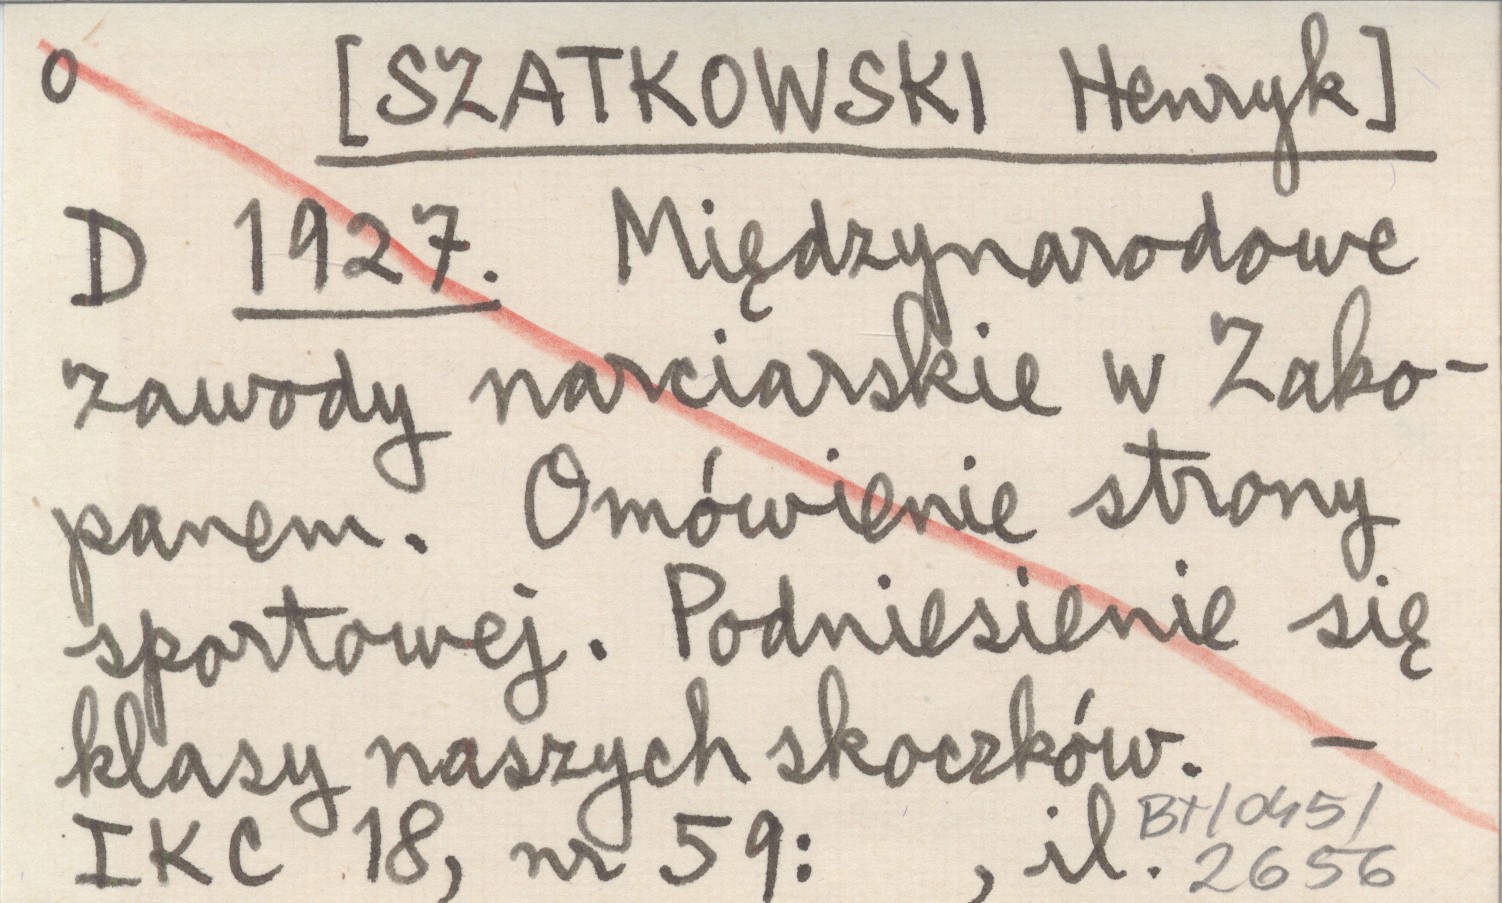 o [SZATKOWSKI Henryk]
D 1927. Międzynarodowe
zawody narciarskie w Zako-
panem. Omówienie strony
sportowej. Podniesienie się
klasy naszych skoczków. –
IKC 18, nr 59: , il.
Bt/045/
2656